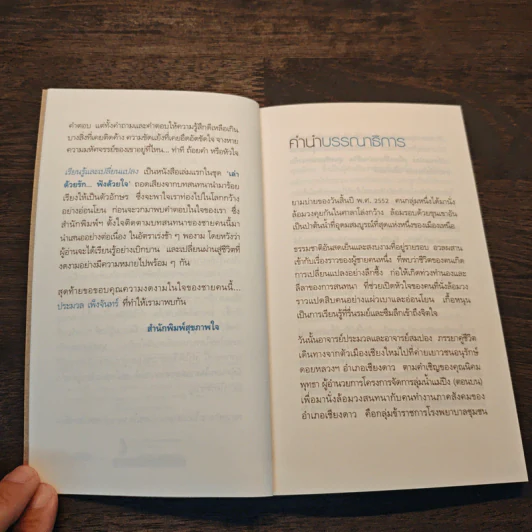 คำตอบ แต่ทั้งคำถามและคำตอบให้ความรู้สึกดีเหลือเกิน
บางสิ่งที่เคยติดค้าง ความขัดแย้งที่เคยอึดอัดขัดใจ จางหาย
ความมหัศจรรย์ของเขาอยู่ที่ไหน... ท่าที ถ้อยคำ หรือหัวใจ
เรียนรู้และเปลี่ยนแปลง เป็นหนังสือเล่มแรกในชุด 'เล่า
ด้วยรัก... ฟังด้วยใจ' ถอดเสียงจากบทสนทนานำมาร้อย
เรียงให้เป็นตัวอักษร ซึ่งจะพาใจเราท่องไปในโลกกว้าง
อย่างอ่อนโยน ก่อนจะวกมาพบคำตอบในใจของเรา ซึ่ง
สำนักพิมพ์ฯ ตั้งใจติดตามบทสนทนาของชายคนนี้มา
นำเสนออย่างต่อเนื่อง ในอัตราเร่งช้า ๆ พองาม โดยหวังว่า
ผู้อ่านจะได้เรียนรู้อย่างเบิกบาน และเปลี่ยนผ่านสู่ชีวิตที่
งดงามอย่างมีความหมายไปพร้อม ๆ กัน
สุดท้ายขอขอบคุณความงดงามในใจของชายคนนี้...
ประมวล เพ็งจันทร์ ที่ทำให้เรามาพบกัน
สำนักพิมพ์สุขภาพใจ
คำนำบรรณาธิการ
ยามบ่ายของวันสิ้นปี พ.ศ. 2552 คนกลุ่มหนึ่งได้มานั่ง
ล้อมวงคุยกันในศาลาโล่งกว้าง ล้อมรอบด้วยขุนเขาอัน
เป็นป่าต้นน้ำที่อุดมสมบูรณ์ที่สุดแห่งหนึ่งของเมืองเหนือ
ธรรมชาติอันสดชื่นและสงบงามที่อยู่รายรอบ สวดผสาน
เข้ากับเรื่องราวของผู้ชายคนหนึ่ง ที่พบว่าชีวิตของคนเกิด
การเปลี่ยนแปลงอย่างลึกซึ้ง ก่อให้เกิดท่วงทำนองและ
ลีลาของการสนทนา ที่ช่วยเปิดหัวใจของคนที่นั่งล้อมวง
ราวแปดสิบคนอย่างแผ่วเบาและอ่อนโยน เกื้อหนุน
เป็นการเรียนรู้ที่รื่นรมย์และซึมลึกเข้าถึงจิตใจ
วันนั้นอาจารย์ประมวลและอาจารย์สมปอง ภรรยาคู่ชีวิต
เดินทางจากตัวเมืองเชียงใหม่ไปที่ค่ายเยาวชนอนุรักษ์
ดอยหลวงฯ อำเภอเชียงดาว ตามคำเชิญของคุณนิคม
พุทธา ผู้อำนวยการโครงการจัดการลุ่มน้ำแม่ปิง (ตอนบน)
เพื่อมานั่งล้อมวงสนทนากับคนทำงานภาคสังคมของ
อำเภอเชียงดาว คือกลุ่มข้าราชการโรงพยาบาลชุมชน